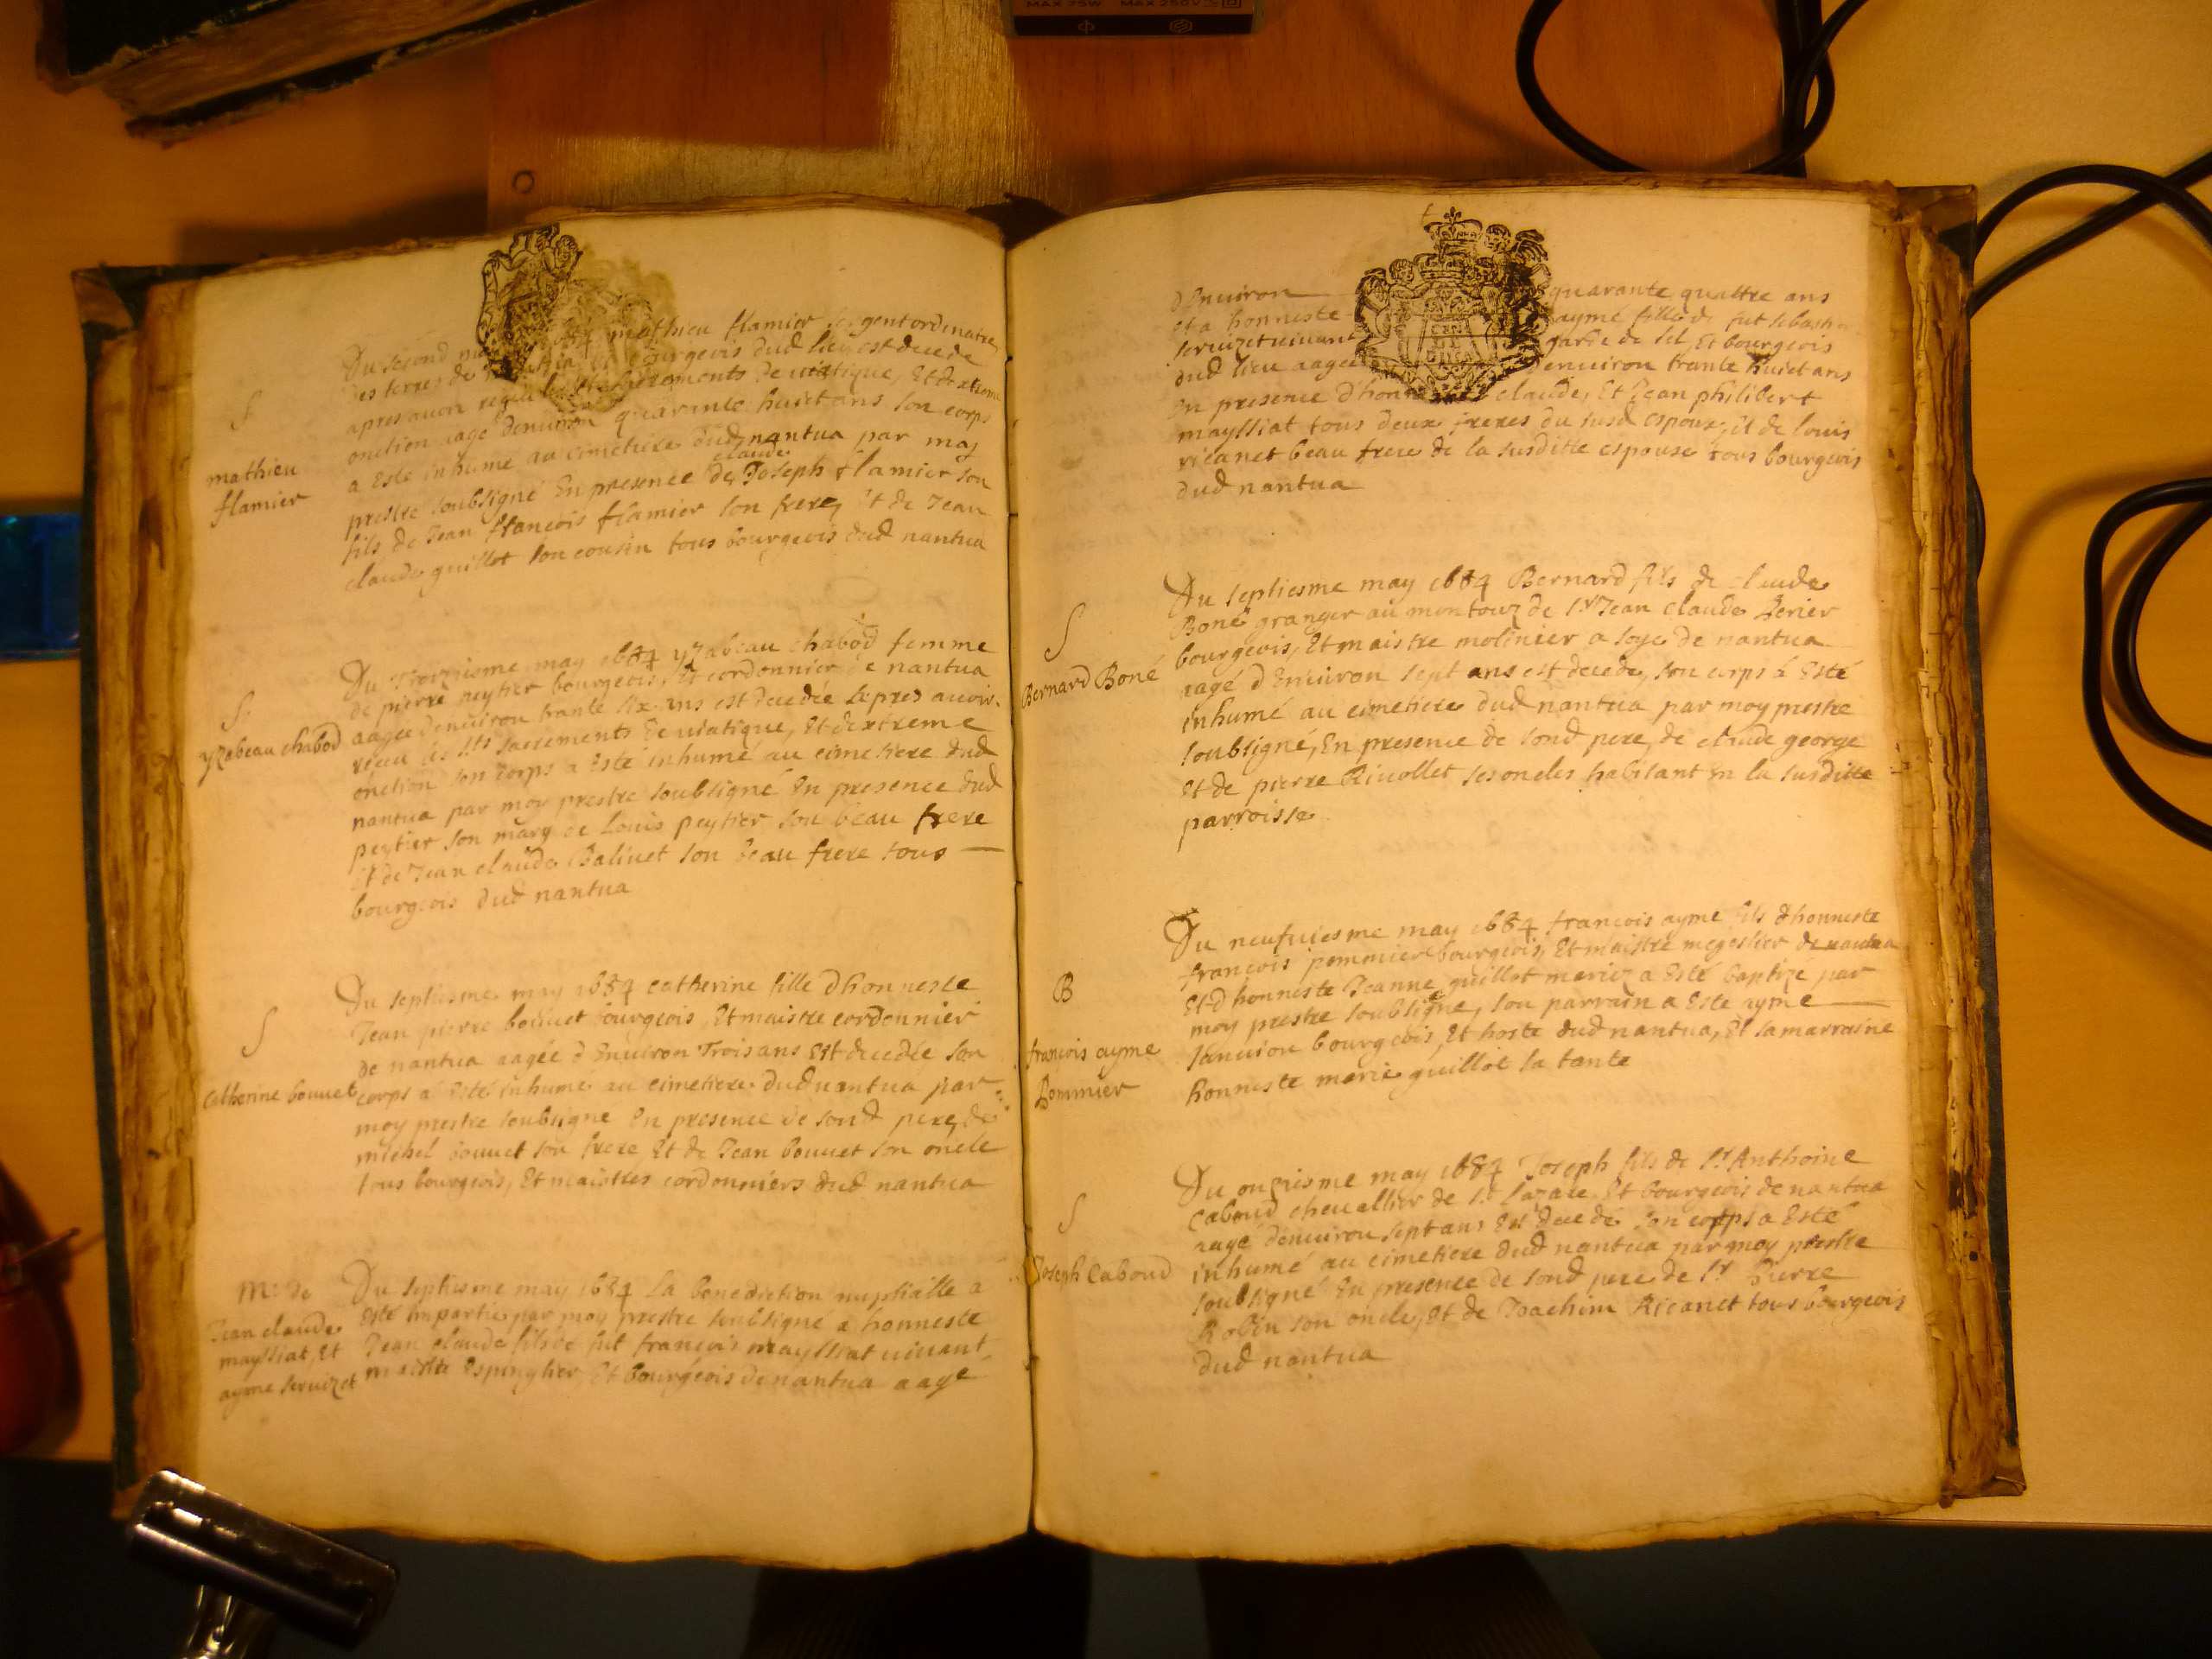 MAX 75W MAX 250V
S
mathieu
flamier
Du second may 1684 mathieu flamier sergent ordinaire
des terres de nantua, et bourgeois dud lieu est decede
apres avoir receu les sts sacrements de viatique, Et d extreme
onction aagé denuiron quarante huict ans son corps
a Esté inhumé au cimetiere dud nantua par moy
prestre soubsigné En presence de claude Joseph flamier son
fils de Jean francois flamier son frere, Et de Jean
claude guillot son cousin tous bourgeois dud nantua
S
yzabeau chabod
Du Troizisme may 1684 yzabeau chabod femme
de pierre peytier bourgeois, Et cordonnier de nantua
aagée denuiron trante six ans est decedée apres auoir
receu les sts sacrements de viatique, Et dextreme
onction son corps a esté inhumé au cimetiere dud
nantua par moy prestre soubsigné En presence dud
peytier son mary de Louis peytier son beau frere
Et de Jean claude Balivet son beau frere tous
bourgeois dud nantua
S
Catherine bouuet
Du septiesme may 1684 catherine fille dhonneste
Jean pierre bouuet bourgeois, Et maistre cordonnier
de nantua aagée d Enuiron Trois ans Est decedée son
corps a Esté inhumé au cimetiere dud nantua par
moy prestre soubsigne En presence de sond pere, de
michel bouuet son frere Et de Jean bouuet son oncle
tous bourgeois, Et maistres cordonniers dud nantua
M. de
Jean claude
mayssiat, Et
ayme seruizet
Du septiesme may 1684 La benediction nuptialle a
Esté Impartie par moy prestre soubsigné a honneste
Jean claude fils de fut francois mayssiat viuant
maistre Espinglier, Et bourgeois de nantua aagé
d Enuiron quarante quattre ans
et a honneste aymé fille de fut sebastien
seruizet viuant garde de sel, Et bourgeois
dud lieu aagée denuiron trante huict ans
En presence dhonneste claude, Et Jean philibert
mayssiat tous deux freres du susd espoux, Et de louis
ricanet beau frere de la susditte espouse tous bourgeois
dud nantua
S
Bernard Boné
Du septiesme may 1684 Bernard fils de claude
Boné granger au montouz de Sr Jean claude Perier
bourgeois, Et maistre molinier a soye de nantua
aagé d Enuiron sept ans est decedé, son corps a Esté
inhumé au cimetiere dud nantua par moy prestre
soubsigné, En presence de sond pere, de claude george
Et de pierre Riuollet ses oncles habitant En la susditte
parroisse
B
francois ayme
Pommier
Du neufuiesme may 1684 francois aymé fils dhonneste
francois pommier bourgeois, Et maistre megessier de nantua
Et d honneste Jeanne guillot mariez a Esté baptizé par
moy prestre soubsigne, son parrain a Esté aymé
Januion bourgeois, Et hoste dud nantua, Et sa marraine
honneste marie guillot sa tante
S
Joseph Caboud
Du onziesme may 1684 Joseph fils de Sr Anthoine
Caboud cheuallier de St Lazare Et bourgeois de nantua
aagé denuiron sept ans Est decedé son corps a Esté
inhumé au cimetiere dud nantua par moy prestre
soubsigné En presence de sond pere de Sr Pierre
Robin son oncle, Et de Joachim Ricanet tous bourgeois
dud nantua